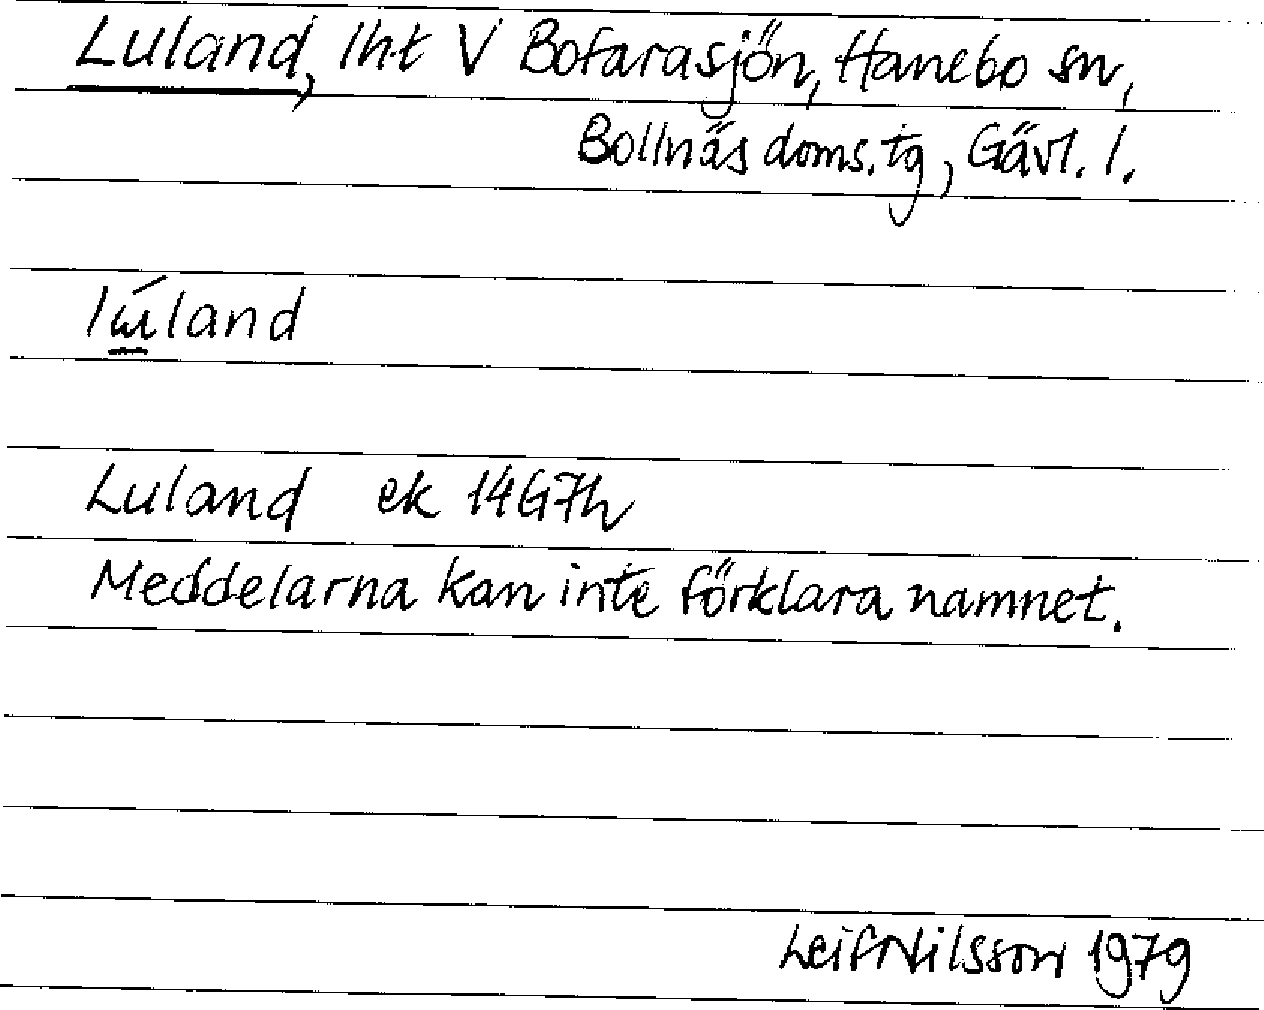 Luland, lht V Bofarasjön, Hanebo sn,
Bollnäs doms.tg, Gävl. l.
lúland
Luland ek 14G7h
Meddelarna kan inte förklara namnet.
Leif Nilsson 1979